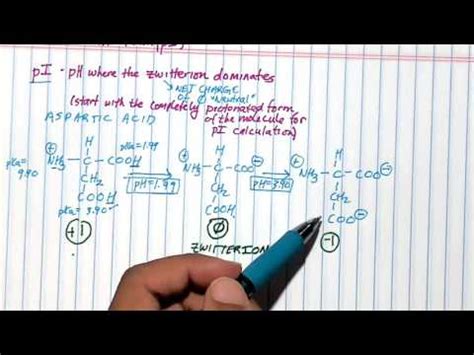 pI - pH where the zwitterion dominates
NET CHARGE
OF Ø "Neutral"
(start with the completely protonated form
of the molecule for
pI calculation)
ASPARTIC ACID
pKa =
9.90
⊕NH3 - C - COOH
H
pKa=1.99
CH2
COOH
pKa= 3.90
+1
pH=1.99
⊕NH3 - C - COO⊖
H
CH2
COOH
Ø
ZWITTERION
pH=3.90
⊕NH3 - C - COO⊖
H
CH2
COO⊖
-1